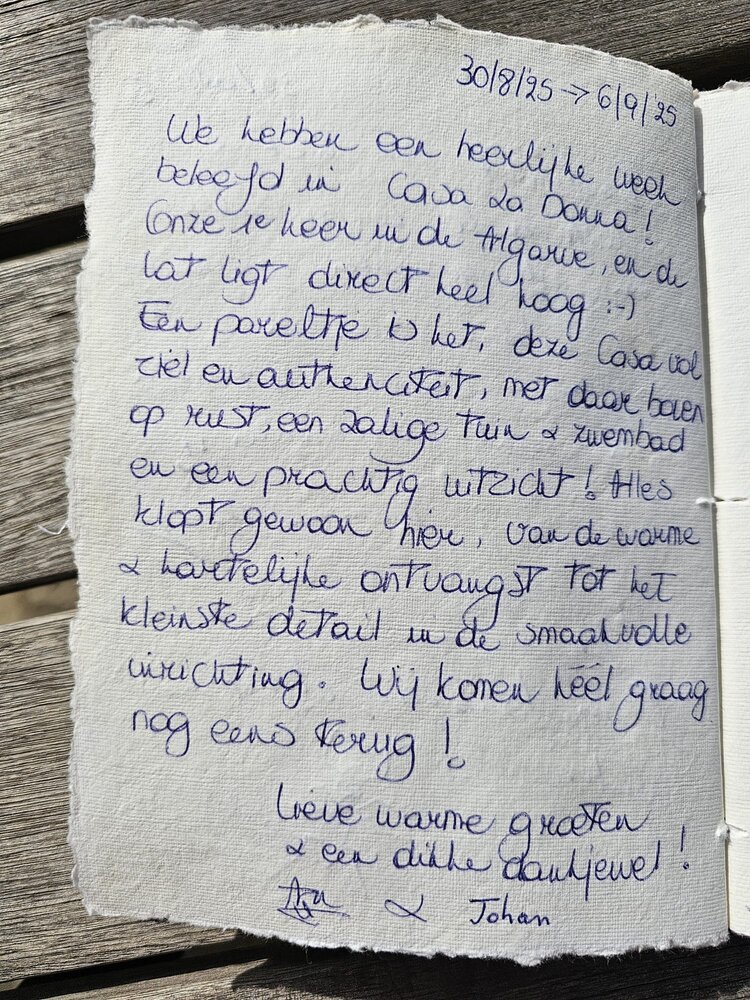 30/8/'25 → 6/9/'25
We hebben een heerlijke week
beleefd in Casa La Donna!
Onze 1e keer in de Algarve, en de
lat ligt direct heel hoog :-)
Een pareltje is het, deze Casa vol
ziel en authenciteit, met daar boven
op rust, een zalige tuin & zwembad
en een prachtig uitzicht! Alles
klopt gewoon hier, van de warme
& hartelijke ontvangst tot het
kleinste detail in de smaakvolle
inrichting. Wij komen héél graag
nog eens terug!
Lieve warme groeten
& een dikke dankjewel!
& Johan